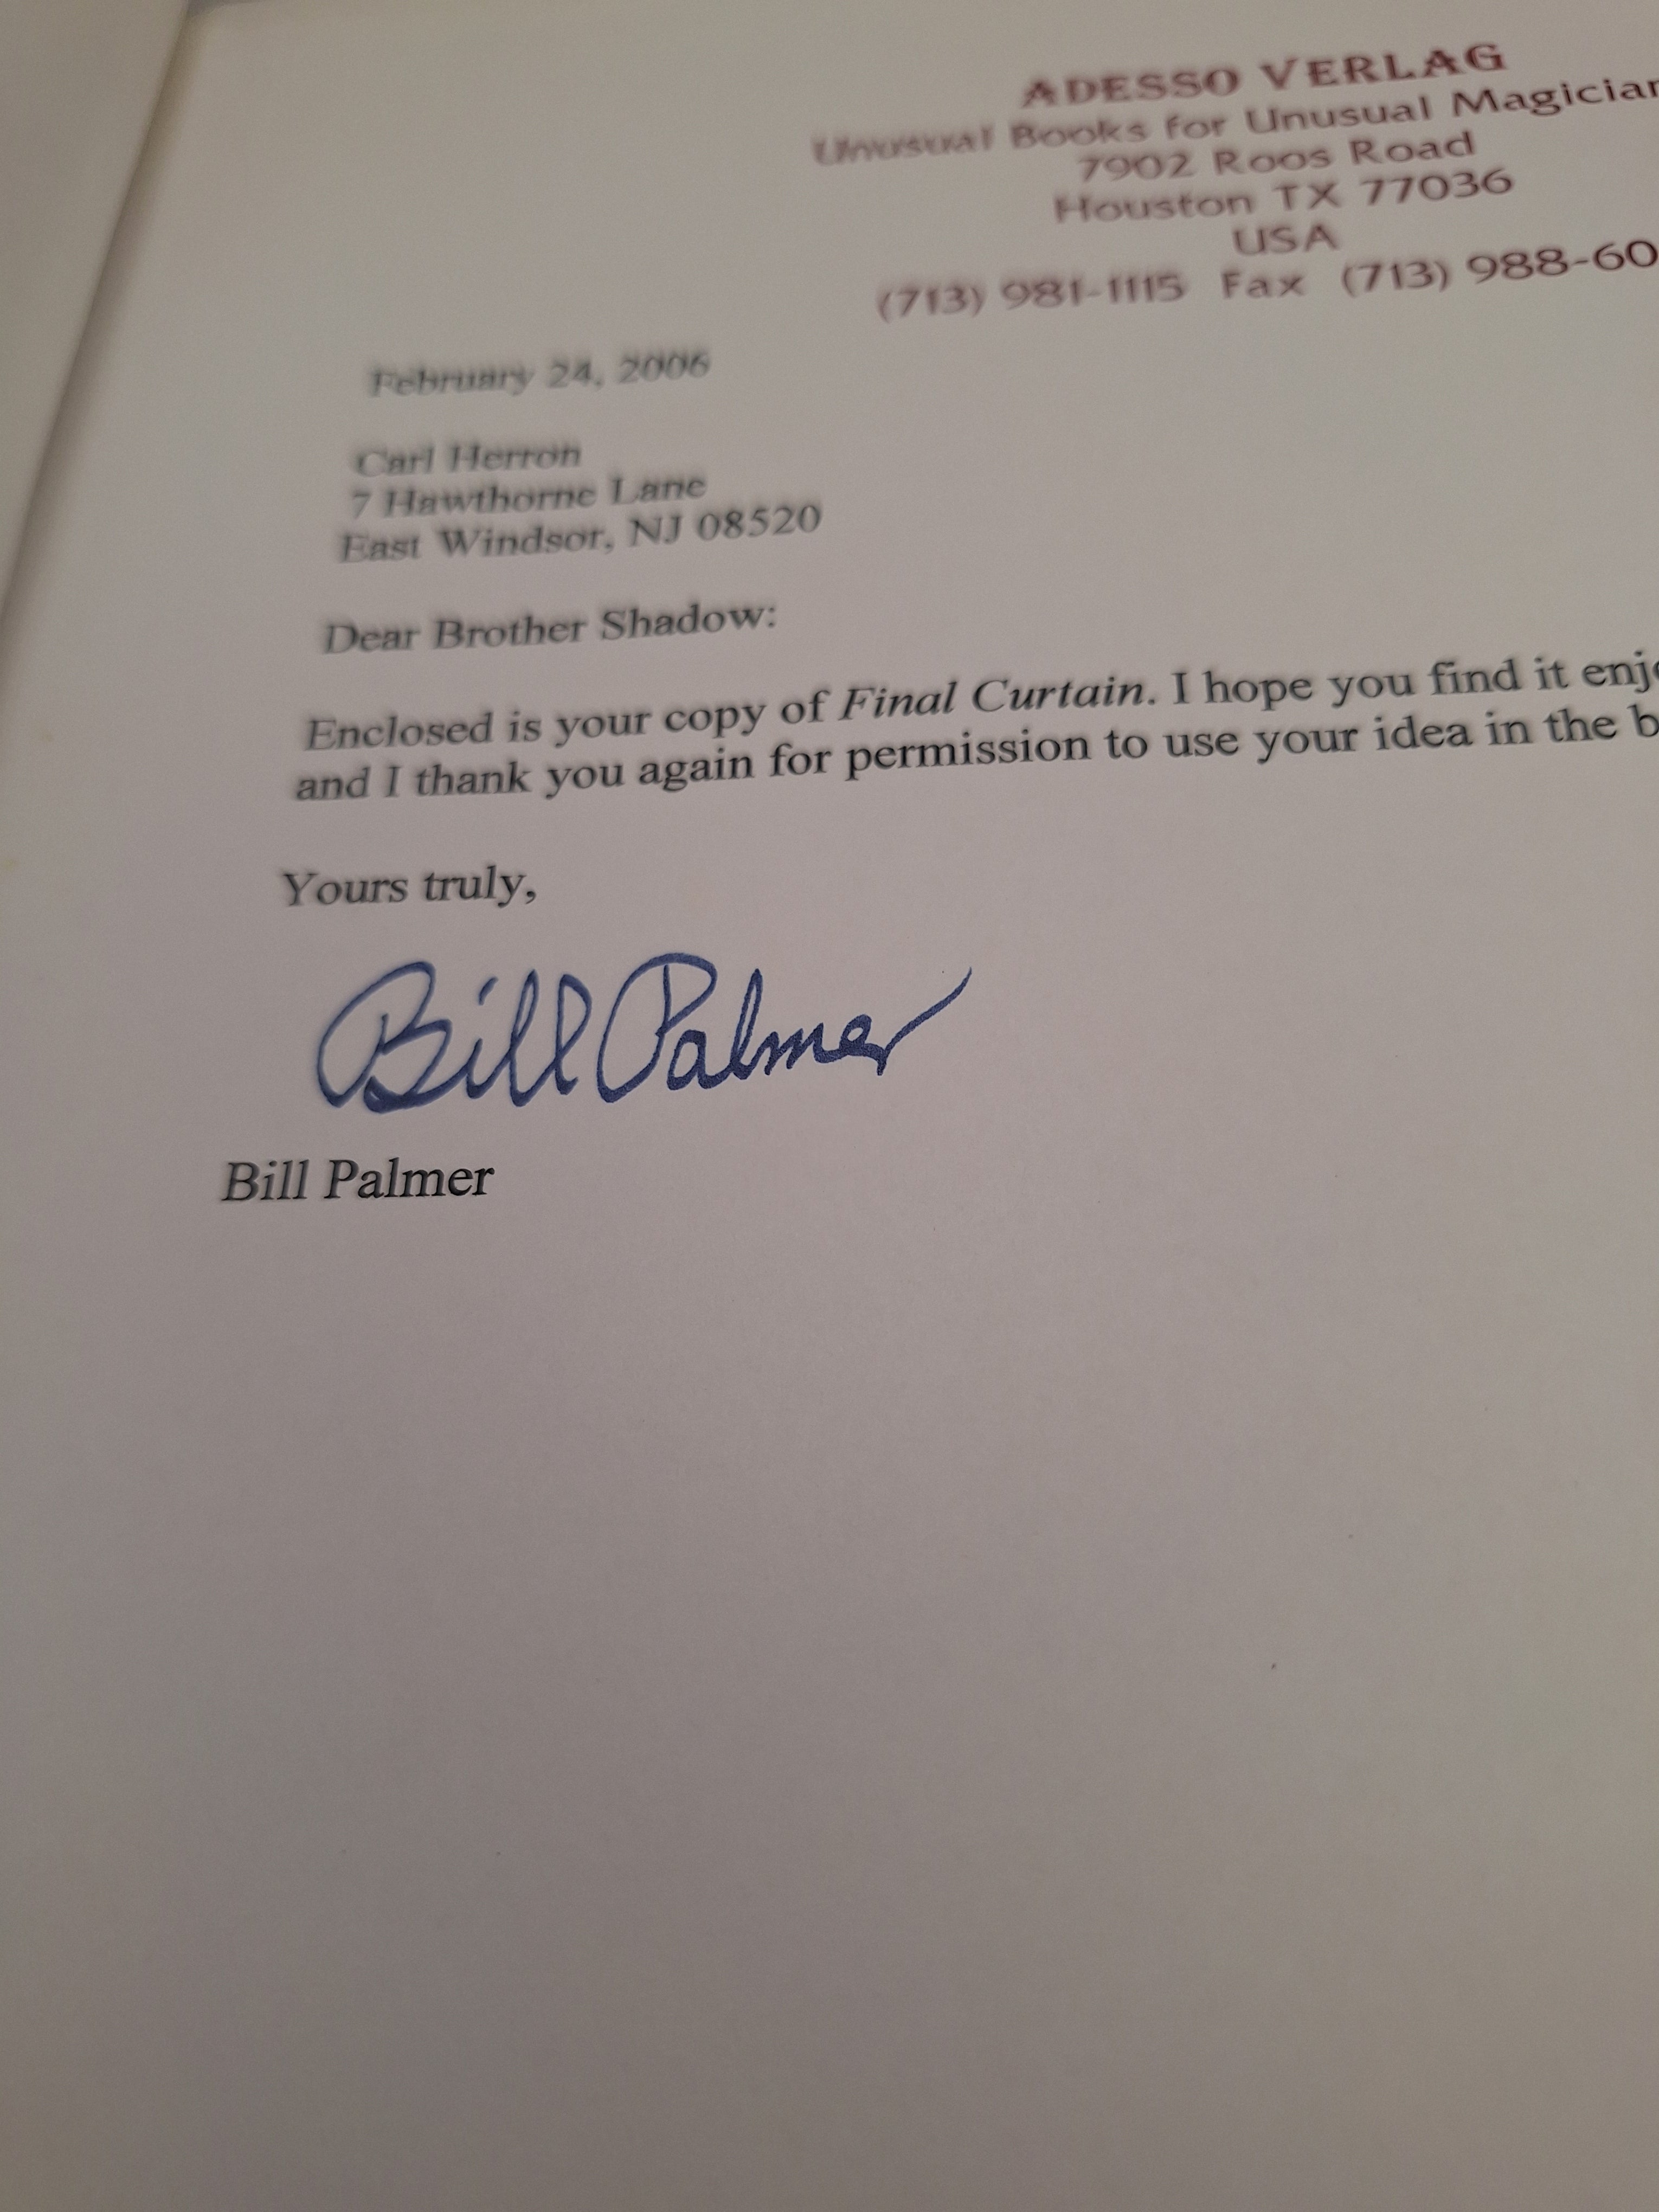 ADESSO VERLAG
Unusual Books for Unusual Magician
7902 Roos Road
Houston TX 77036
USA
(713) 981-1115 Fax (713) 988-60
February 24, 2006
Carl Herron
7 Hawthorne Lane
East Windsor, NJ 08520
Dear Brother Shadow:
Enclosed is your copy of Final Curtain. I hope you find it enj
and I thank you again for permission to use your idea in the b
Yours truly,
Bill Palmer
Bill Palmer